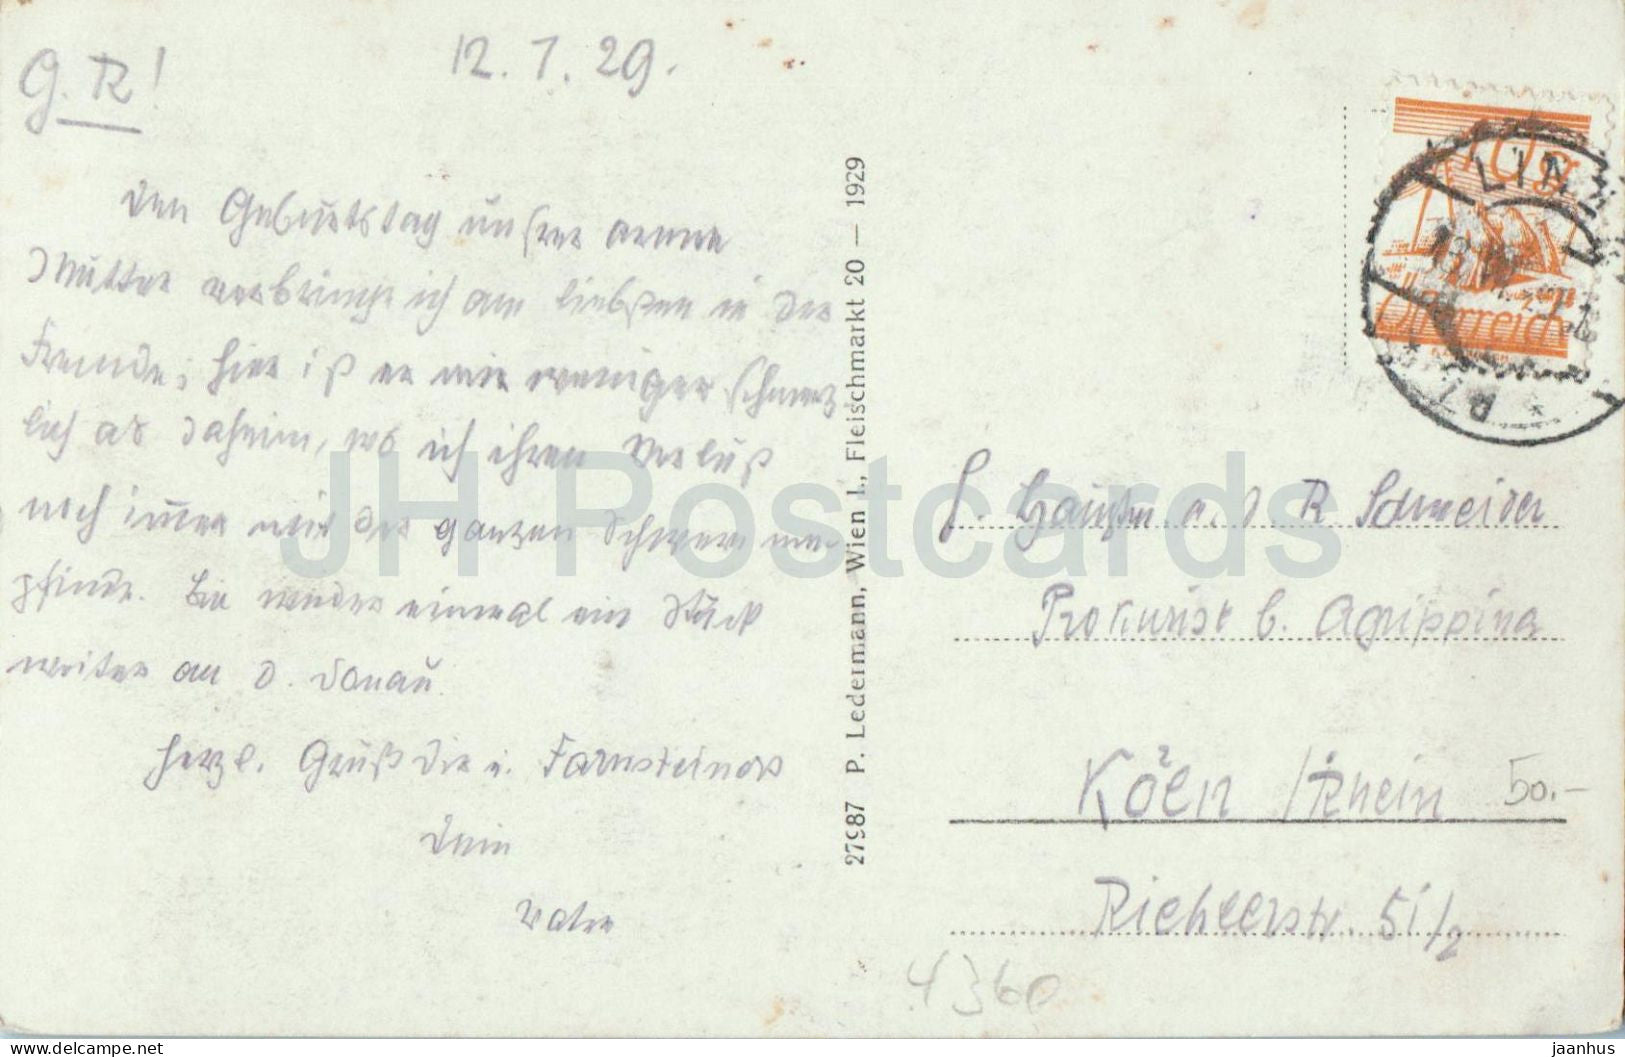 G. R!
12.7.29.
Den Geburtstag unserer armen
Mutter verbringe ich am liebsten in der
Fremde; hier ist er mir weniger schmerz
lich als daheim, wo ich ihren Verlust
noch immer mit der ganzen Schwere em-
pfinde. Bin wieder einmal ein Stück
weiter an d. Donau.
Herzl. Gruß Dir u. Farnsteiners
Dein
Vater
27987 P. Ledermann, Wien I., Fleischmarkt 20 — 1929
10g
Österreich
LINZ
H. Hauptm. a. D. R. Schneider
Prokurist b. Agrippina
Köln /Rhein
50.-
Richterstr. 51/2
4360
JH Postcards
www.delcampe.net
jaanhus